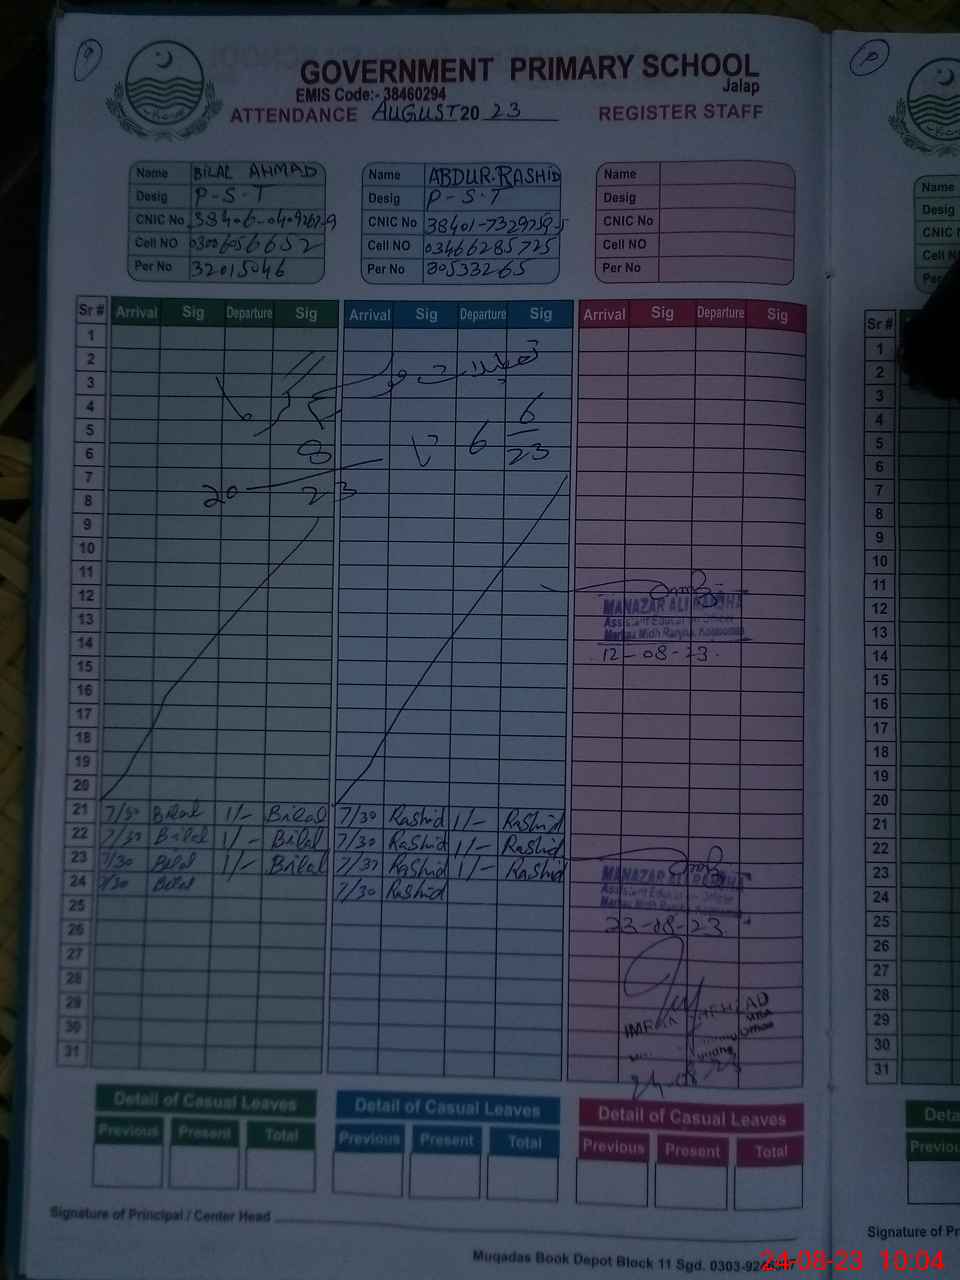 9
GOVERNMENT PRIMARY SCHOOL
Jalap
EMIS Code:- 38460294
ATTENDANCE AUGUST 20 23 REGISTER STAFF
Name BILAL AHMAD
Desig P-S-T
CNIC No
Cell NO 03006056652
Per No 32015046
Name ABDUR.RASHID
Desig P-S-T
CNIC No 38401-7329259-5
Cell NO 03466285725
Per No 30533265
Name
Desig
CNIC No
Cell NO
Per No
Sr # Arrival Sig Departure Sig Arrival Sig Departure Sig Arrival Sig Departure Sig
1
2
3
4
5
6
7
8
9
10
11
12
13
14
15
16
17
18
19
20
تعطیلات
6 6/23
8
20 23
MANAZAR ALI RANJHA
Assistant Education Officer
12-08-23.
21 7/30 Bilal 1/- Bilal 7/30 Rashid 1/- Rashid
22 7/30 Bilal 1/- Bilal 7/30 Rashid 1/- Rashid
23 7/30 Bilal 1/- Bilal 7/30 Rashid 1/- Rashid
24 7/30 Bilal 7/30 Rashid
25
26
27
28
29
30
31
MANAZAR ALI RANJHA
Assistant Education Officer
23-08-23.
24-08-23
Detail of Casual Leaves
Previous Present Total
Detail of Casual Leaves
Previous Present Total
Detail of Casual Leaves
Previous Present Total
Signature of Principal / Center Head
Muqadas Book Depot Block 11 Sgd.
Name
Desig
CNIC
Cell N
Per
Sr #
1
2
3
4
5
6
7
8
9
10
11
12
13
14
15
16
17
18
19
20
21
22
23
24
25
26
27
28
29
30
31
Deta
Previou
Signature of Pr
24-08-23 10:04